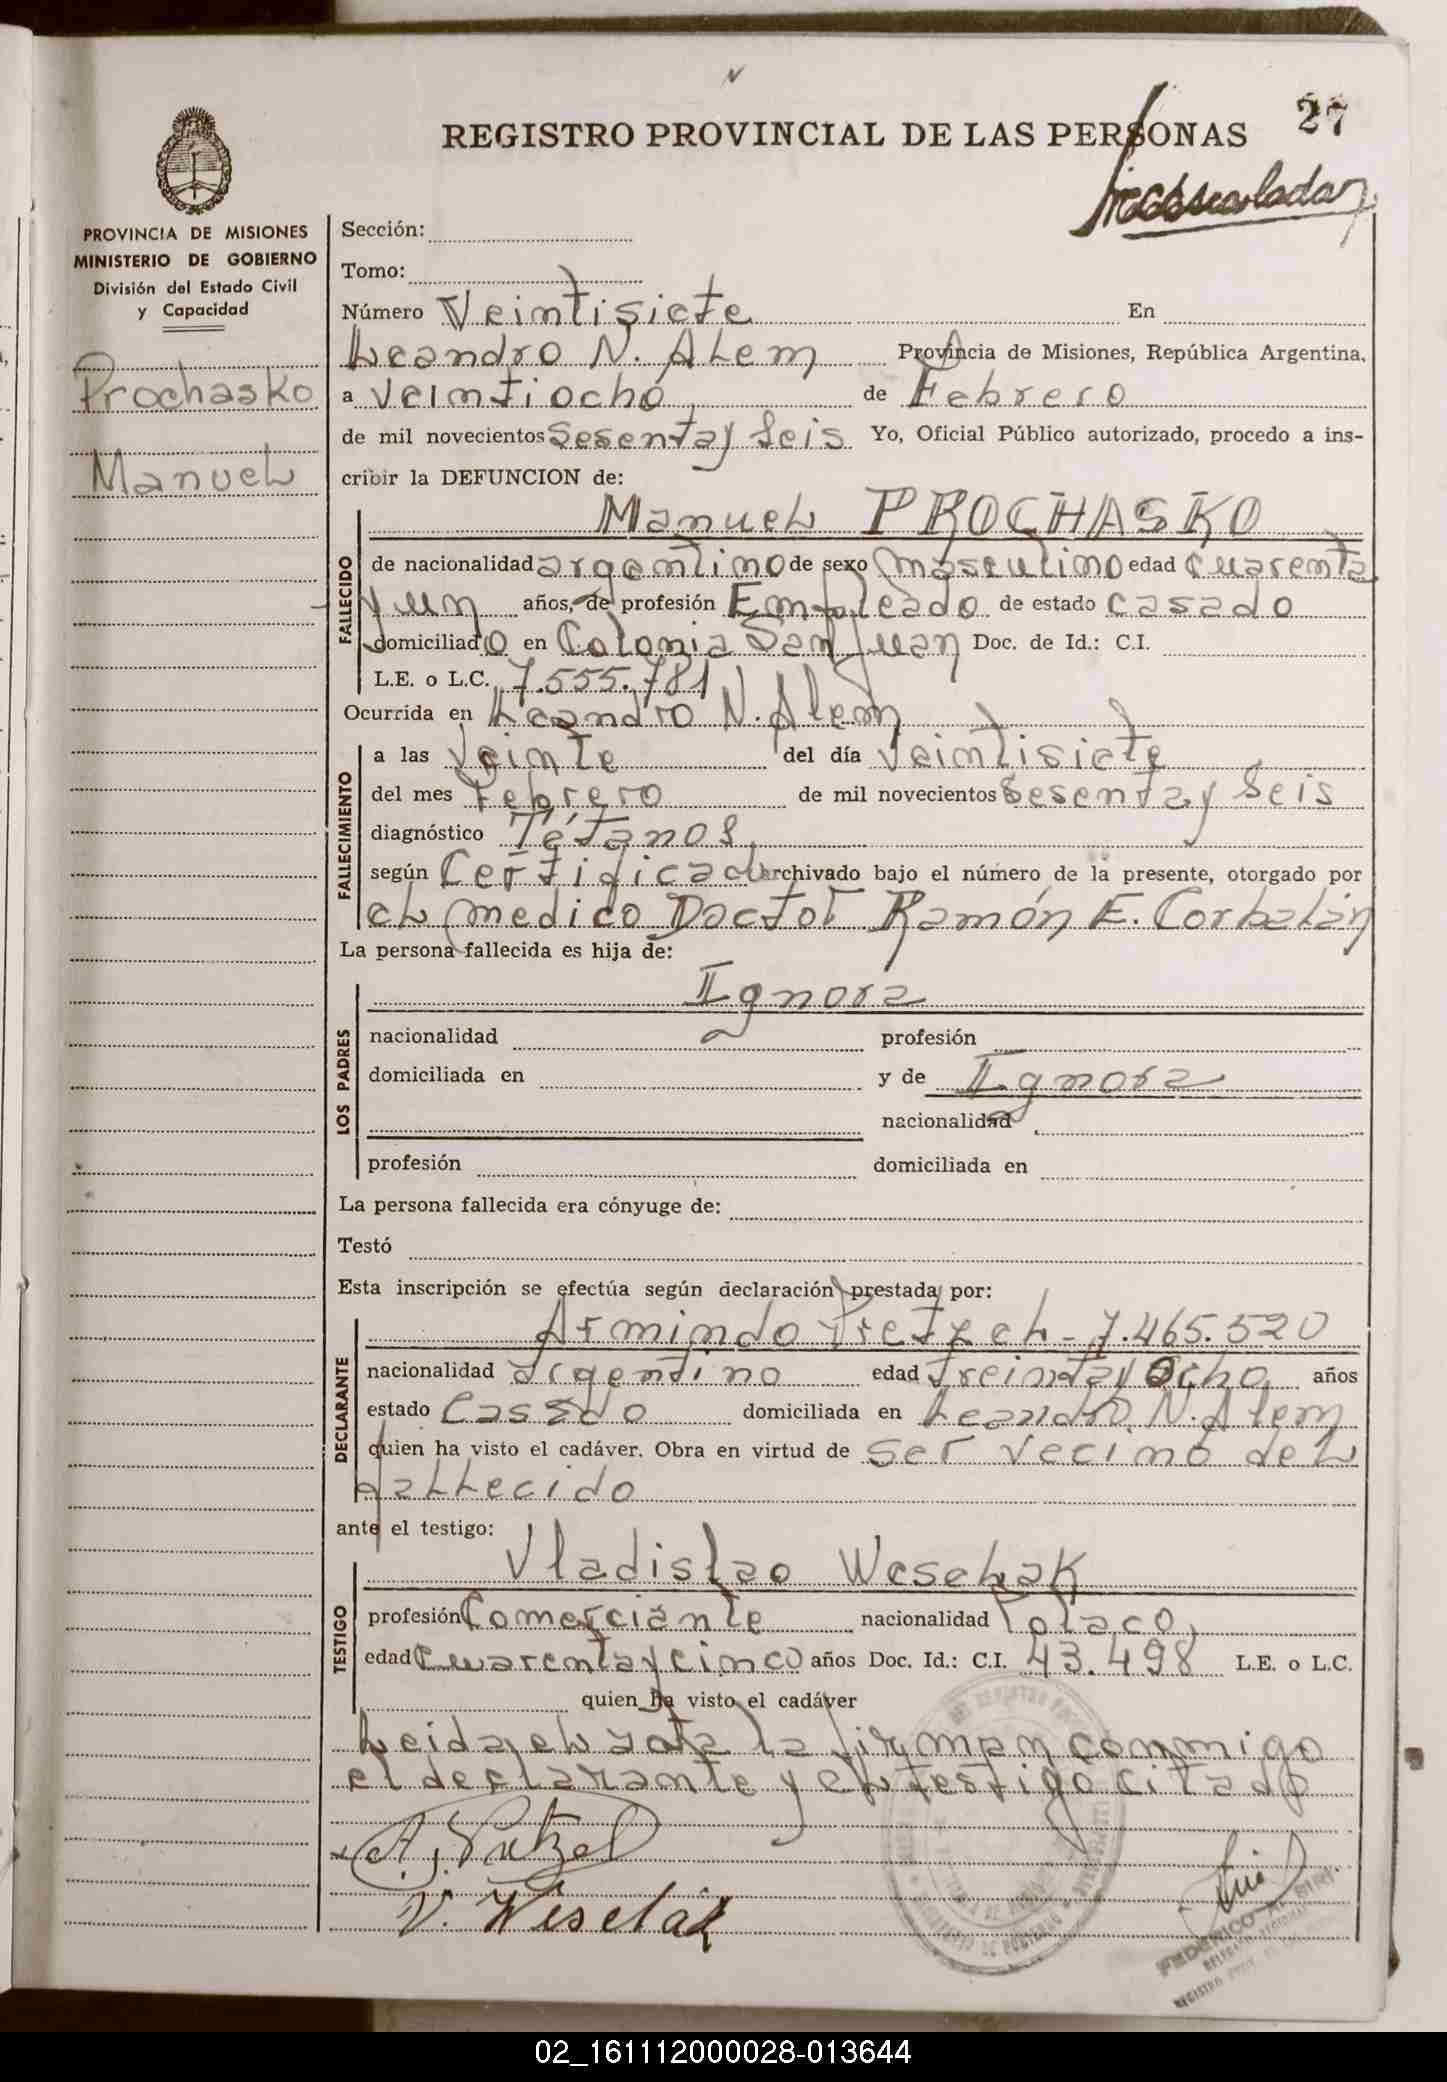 27
REGISTRO PROVINCIAL DE LAS PERSONAS
PROVINCIA DE MISIONES
MINISTERIO DE GOBIERNO
División del Estado Civil
y Capacidad
Prochasko
Manuel
Sección:
Tomo:
Número Veintisiete En
Leandro N. Alem Provincia de Misiones, República Argentina,
a veintiocho de Febrero
de mil novecientos Sesenta y Seis Yo, Oficial Público autorizado, procedo a ins-
cribir la DEFUNCION de:
Manuel PROCHASKO
FALLECIDO
de nacionalidad argentino de sexo masculino edad cuarenta
y un años, de profesión Empleado de estado casado
domiciliado en Colonia San Juan Doc. de Id.: C.I.
L.E. o L.C. 7.555.781
Ocurrida en Leandro N. Alem
FALLECIMIENTO
a las Veinte del día Veintisiete
del mes Febrero de mil novecientos Sesenta y Seis
diagnóstico Tétanos,
según Certificado archivado bajo el número de la presente, otorgado por
el medico Doctor Ramón E. Corbalán
La persona fallecida es hija de:
LOS PADRES
Ignora
nacionalidad profesión
domiciliada en y de Ignora
nacionalidad
profesión domiciliada en
La persona fallecida era cónyuge de:
Testó
Esta inscripción se efectúa según declaración prestada por:
DECLARANTE
Armindo Pretzel - 7.465.520
nacionalidad argentino edad treinta y ocho años
estado Casado domiciliada en Leandro N. Alem
quien ha visto el cadáver. Obra en virtud de ser vecino del
fallecido
ante el testigo:
TESTIGO
Vladislao Weselak
profesión Comerciante nacionalidad Polaco,
edad Cuarenta y cinco años Doc. Id.: C.I. 43.498 L.E. o L.C.
quien ha visto el cadáver
Leida el acta la firman conmigo
el declarante y el testigo citado
V. Weselak
FEDERICO
02_161112000028-013644